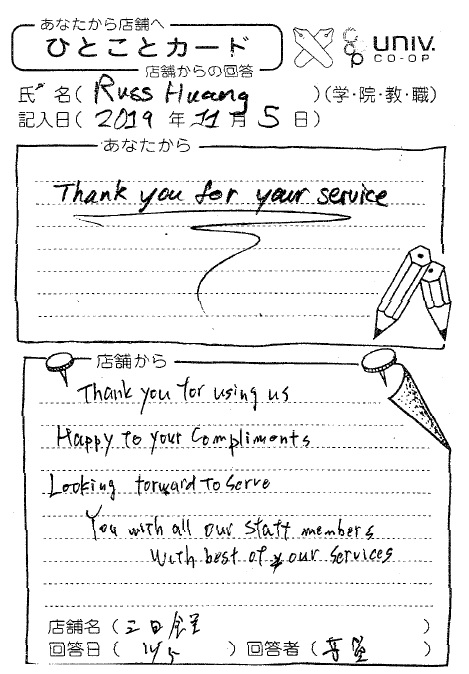 あなたから店舗へ
ひとことカード
店舗からの回答
UNIV.
CO-OP
氏名( Russ Huang )(学・院・教・職)
記入日( 2019 年 11 月 5 日)
あなたから
Thank you for your service
店舗から
Thank you for using us
Happy to your Compliments
Looking forward to serve
You with all our staff members
With best of our services
店舗名( )
回答日( 11/5 ) 回答者( )